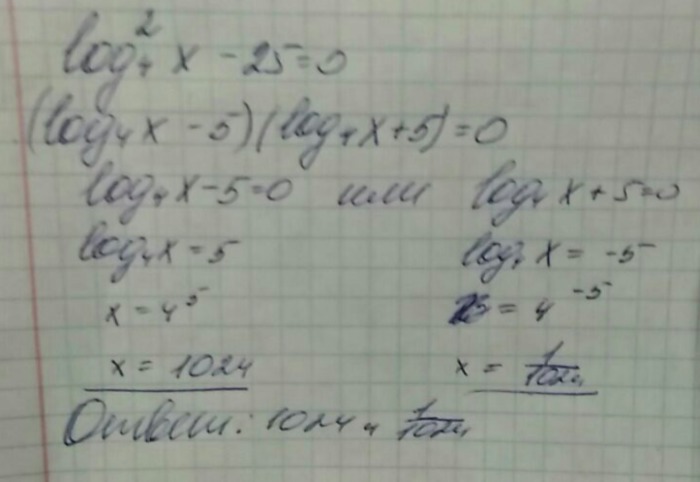 log₄² x - 25 = 0
(log₄ x - 5)(log₄ x + 5) = 0
log₄ x - 5 = 0 или log₄ x + 5 = 0
log₄ x = 5 log₄ x = -5
x = 4⁵ = 4⁻⁵
x = 1024 x = 1/1024
Ответ: 1024 и 1/1024